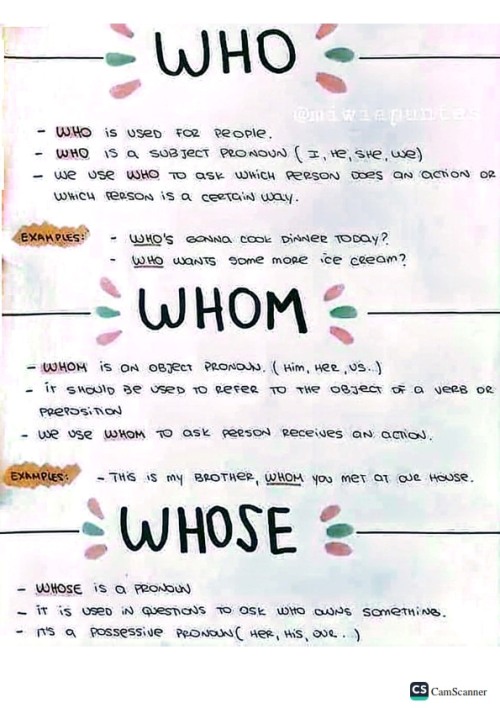 WHO
@miwiapuntes
- WHO is used for people.
- WHO is a subject pronoun ( I, He, She, we)
- we use WHO to ask which person does an action or
which person is a certain way.
EXAMPLES: - WHO's gonna cook dinner today?
- WHO wants some more ice cream?
WHOM
- WHOM is an object pronoun. ( Him, Her, us..)
- it should be used to refer to the object of a verb or
preposition
- we use WHOM to ask person receives an action.
EXAMPLES: - This is my brother, WHOM you met at our house.
WHOSE
- WHOSE is a pronoun
- it is used in questions to ask who owns something.
- it's a possessive pronoun( Her, His, our..)
CS CamScanner